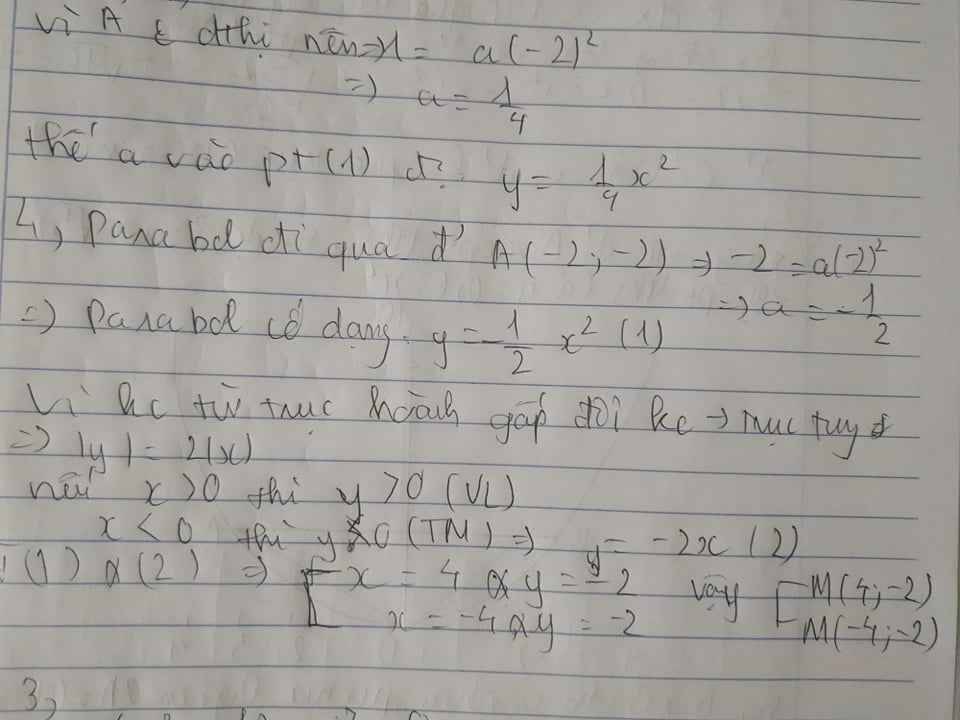 Vì A ∈ đthị nên => 1 = a(-2)²
=> a = 1/4
thế a vào pt (1) đ?. y = 1/4 x²
4, Parabol đi qua đ' A(-2; -2) => -2 = a(-2)²
=> a = -1/2
=> Parabol có dạng. y = -1/2 x² (1)
Vì kc từ trục hoành gấp đôi kc → trục tung
=> |y| = 2|x|
nếu x > 0 thì y > 0 (VL)
x < 0 thì y < 0 (TM) => y = -2x (2)
(1) & (2) => [ x = 4 & y = -2 vậy [ M(4; -2)
x = -4 & y = -2 M(-4; -2)
3,